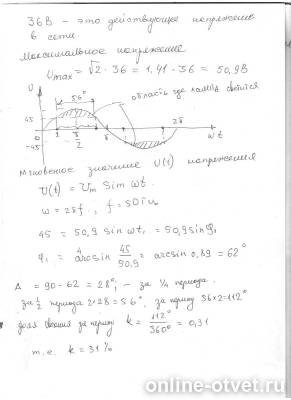 36В – это действующее напряжение
в сети
Максимальное напряжение
Umax = √2 · 36 = 1,41 · 36 = 50,9В
U
56°
область где лампа светится
45
0
-45
1
π/2
π
2π
ωt
Мгновенное значение U(t) напряжения
U(t) = Um Sin ωt.
ω = 2πf, f = 50Гц
45 = 50,9 sin ωt₁ = 50,9 sin φ₁
φ₁ = arcsin 45/50,9 = arcsin 0,89 = 62°
Δ = 90 - 62 = 28°; – за 1/4 периода.
за 1/2 периода 2×28 = 56°, за период 56×2=112°
доля свечения за период k = 112°/360° = 0,31
т.е. k = 31%
online-otvet.ru